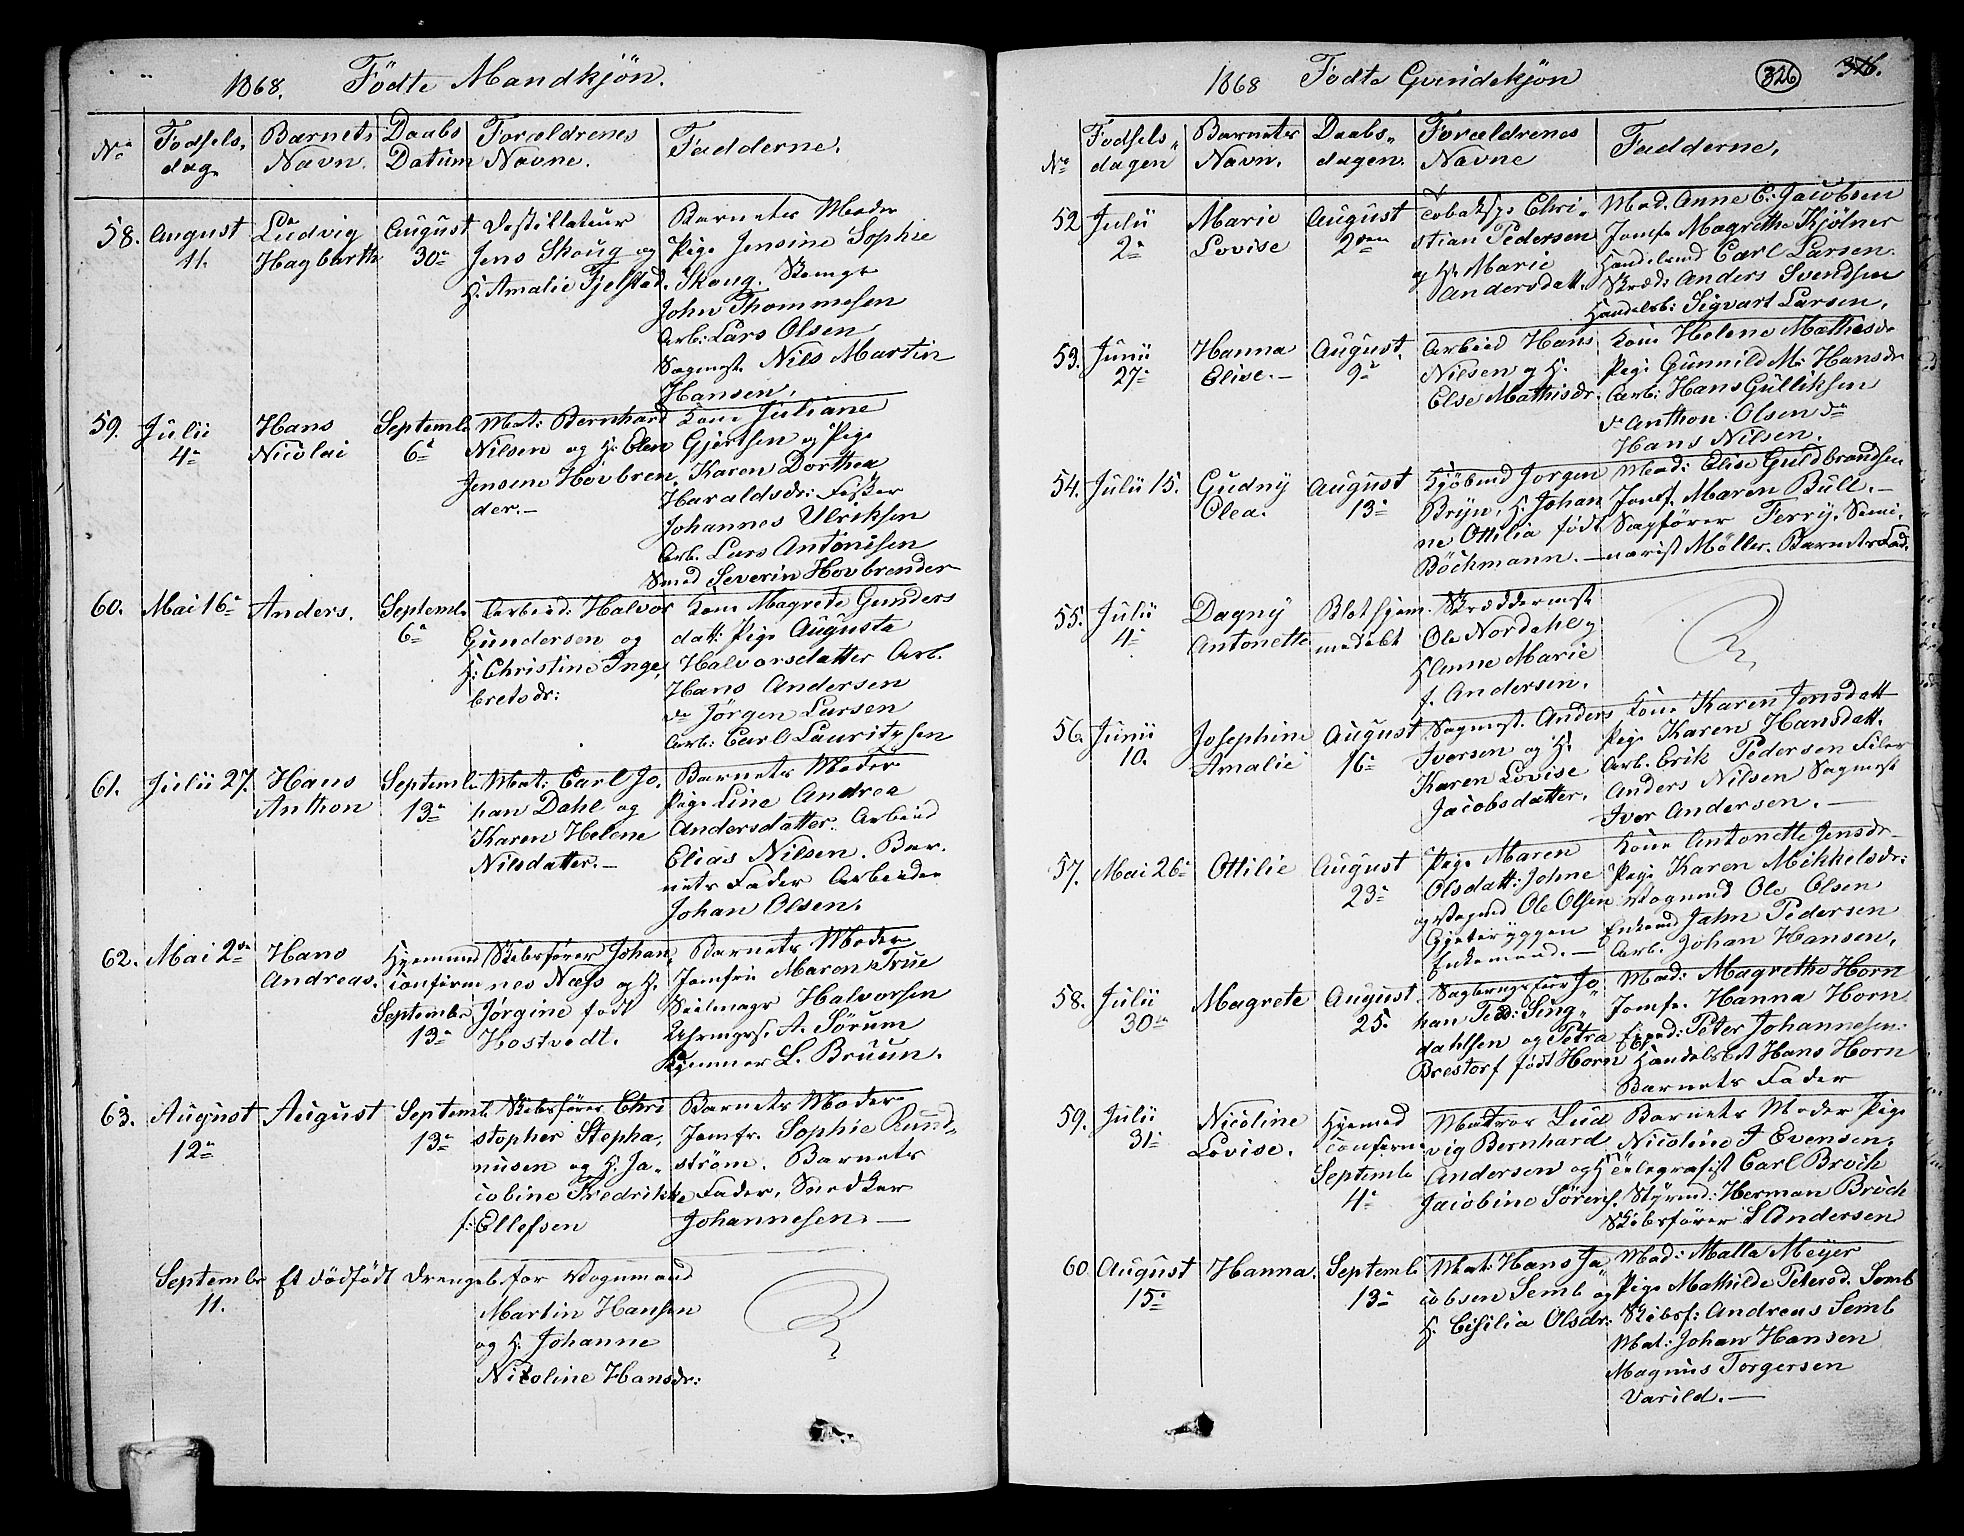 1868. Födte Mandkjön.
No Fodsels, dag. Barnets Navn. Daabs Datum Foræeldrenes Navne. Fadderne.
58. August 11. Ludvig Hagbarth August 30te Destillateur Jens Skoug og H: Amalie Fjelstad. Barnets Moder
Pige Jensine Sophie
Skoug.
John Thommesen
Arb: Lars Olsen
Sagmest. Nils Martin
Hansen.
59. Julii 4de Hans Nicolai Septembr 6te Mat: Bernhard Nilsen og H: Elen Jensine Hovbren, der.— Kone Juliane
Gjertsen og Pige
Karen Dorthea
Haraldsdr: Fisker
Johannes Ulriksen
Arb. Lars Antonisen
Smed Severin Hovbrender
60. Mai 16de Anders. Septembr 6te Arbeid: Halvor Gundersen og H: Christine Inge, bretsdr: Kone Magrete Gunders
datt: Pige Augusta
Halvorsdatter Arb.
Hans Andersen
do Jörgen Larsen
Arb: Carl Lauritzsen
61. Julii 27. Hans Anthon Septembr 13de Mat: Carl Jo, han Dahl og Karen Helene Nilsdatter.— Barnets Moder
Pige Line Andrea
Andersdatter. Arbeid
Elias Nilsen. Bar,
nets Fader Arbeider
Johan Olsen.
62. Mai 2den Hans Andreas. Hjemmed confirm Septembr 13de Skibsförer Johan, nes Næss og H. Jørgine født Hostvedt. Barnets Moder
Jomfru Maren True
Seilmagr Halvorsen
Uhrmagr. A. Sörum
L. Bruun.
63. August 12te August Septembr 13de Skibsförer Chri stopher Stepha, nusen og H. Ja, cobine Fredrikke f: Ellefsen Barnets Moder
Jomfr. Sophie Rund,
ström. Barnets
Fader, Snedker
Johannesen.—
Septembr 11. Et dödfödt Drengeb. for Vognmand
Martin Hansen
og H. Johanne
Nicoline Hansdr:
1868 Fodte Qvindekjön 326 316.
No Fodsels, dagen Barnets Navn. Daabs, dagen. Foræeldrenes Navne Fadderne.
52 Julii 2de Marie Lovise August 2den Tobaksp. Chri, stian Pedersen og H. Marie Andersdatt. Mad. Anne C. Jacobsen
Jomfr Magrethe Kjölner
Handelsmd Carl Larsen.
Skræd: Anders Svendsen
Handelsb: Sigvart Larsen.
53. Junii 27de Hanna Elise.— August 9de Arbeid Hans Nilsen og H. Else Mathisdr. Kone Helene Mathisdr
Pige Gunnild M. Hansdr
Arb: Hans Gulliksen
do Anthon Olsen do
Hans Nilsen.
54. Julii 15. Gudny Olea. August 13de Kjöbmd Jorgen Bryn, H. Johan ne Ottilia född Böckmann.— Mad: Elise Guldbrandsen
Jomf. Maren Bull.—
Sagförer Ferry, Semi,
narist Möller. Barnets Fad.
55. Julii 4de Dagny Antonette Blot hjem medöbt Skræddermest Ole Nordahl og H Anne Marie f. Andersen.
56. Junii 10. Josephine Amalie August 16de Sagmest. Anders Iversen og H. Karen Lovise Jacobsdatter. Kone Karen Jonsdatt
Pige Karen Hansdatt.
Arb. Erik Pedersen Filer
Anders Nilsen Sagmest
Iver Andersen.—
57. Mai 26de Ottilie August 23de Pige Maren Olsdatt: Johne og Vogmd Ole Olsen Gjeteryggen Enkemand.— Kone Antonette Jensdr
Pige Karen Mikkelsdr:
Vogmnd Ole Olsen
Enkemd Jahn Pedersen
Arb. Johan Hansen.
58. Julii 30te Magrete August 25. Sagbrugsförer Jo, han Ped: Sing, dahlsen og Petra Brestorf född Horn Mad: Magrethe Horn
Jomfr. Hanna Horn
Exped: Peter Johannesen:
Handelsbet Hans Horn
Barnets Fader
59. Julii 31te Nicoline Lovise. Hjemmed confirm Septembr 4de Matros Lud vig Bernhard Andersen og H Jacobine Sörens. Barnets Moder Pige
Nicoline J Evensen,
Telegrafist Carl Broch
Styrmd: Herman Broch
Skibsförer S Andersen
60 August 15de Hanna. Septembr 13de Mat: Hans Ja, cobsen Semb og H. Cisilia Olsdr: Mad: Malla Meyer
Pige Mathilde Petersd. Semb
Skibsf: Andreas Semb
Mat: Johan Hansen
Magnus Torgersen
Varild.—